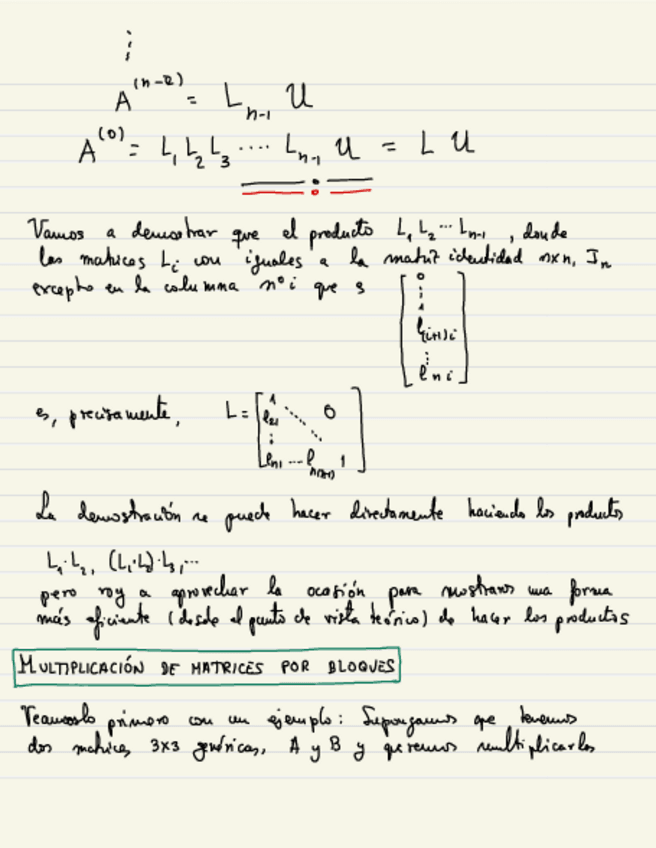 ⋮
A^(n-2) = L_{n-1} U
A^(0) = L_1 L_2 L_3 .... L_{n-1} U = L U
Vamos a demostrar que el producto L_1 L_2 ... L_{n-1}, donde
las matrices L_i son iguales a la matriz identidad n×n, I_n
excepto en la columna nº i que es [0 ⋮ 1 l_{(i+1)i} ⋮ l_{ni}]
es, precisamente, L = [1 ⋱ 0 l_{21} ⋮ ⋱ l_{n1} ... l_{n(n-1)} 1]
La demostración se puede hacer directamente haciendo los productos
L_1·L_2, (L_1·L_2)·L_3, ...
pero voy a aprovechar la ocasión para mostraros una forma
más eficiente (desde el punto de vista teórico) de hacer los productos
MULTIPLICACIÓN DE MATRICES POR BLOQUES
Veámoslo primero con un ejemplo: Supongamos que tenemos
dos matrices 3x3 genéricas, A y B y queremos multiplicarlas